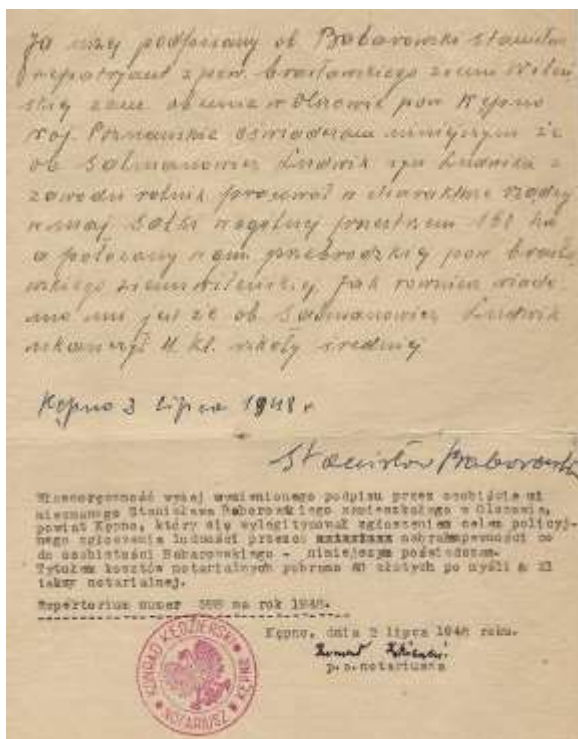 Ja niżej podpisany ob Baborowski Stanisław
repatrjant z pow. brasławskiego ziemi Wileń
skiej zam. obecnie w Olszowie pow Kępno
woj. Poznańskie oświadczam niniejszym że
ob Salmanowicz Ludwik syn Ludwika z
zawodu rolnik pracował w charakterze rządcy
w maj o ogólnej przestrzeni ha
a położony gmin przebrodzkiej pow brasła
wskiego ziemi wileńskiej Jak również wiado
mo mi jest że ob. Salmanowicz Ludwik
ukończył kl. szkoły średniej
Kępno 3 lipca 1948 r
Stanisław Baborowski
Własnoręczność wyżej wymienionego podpisu przez osobiście mi
nieznanego Stanisława Baborowskiego zamieszkałego w Olszowie,
powiat Kępno, który się wylegitymował zgłoszeniem celem policyj-
nego zgłoszenia ludności przezco nabrałem pewności co
do osobistości Baborowskiego - niniejszym poświadczam.
Tytułem kosztów notarialnych pobrano złotych po myśli § 21
taksy notarialnej.
Repertorium numer na rok 1948.
Kępno, dnia 3 lipca 1948 roku.
p.o.notariusza
KONRAD KĘDZIERSKI
NOTARIUSZ